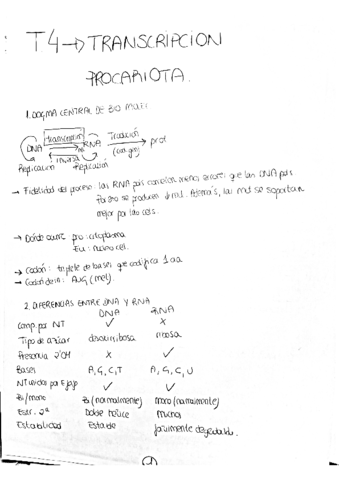 T4 → TRANSCRIPCION
PROCARIOTA.
1. DOGMA CENTRAL DE BIO
transcripción Traducción
DNA RNA → prot
inversa
Replicación Replicación
→ Fidelidad del proceso: las RNA pols cometen menos que las DNA pols
se producen mut. Además, las mut se soportan
mejor por las cels.
→ Dónde ocurre pro: citoplasma
Eu: núcleo cel.
→ Codón: triplete de bases que codifica 1 aa
→ Codón de in: AUG (met).
2. DIFERENCIAS ENTRE DNA Y RNA
DNA RNA
Comp. por NT ✓ ×
Tipo de azúcar desoxirribosa ribosa
Presencia 2'OH × ✓
Bases A, G, C, T A, G, C, U
NT unidos por E ✓ ✓
Bi/mono Bi (normalmente) mono (normalmente)
Estr. 2ª Doble hélice Mucha
Estabilidad Estable fácilmente degradable.